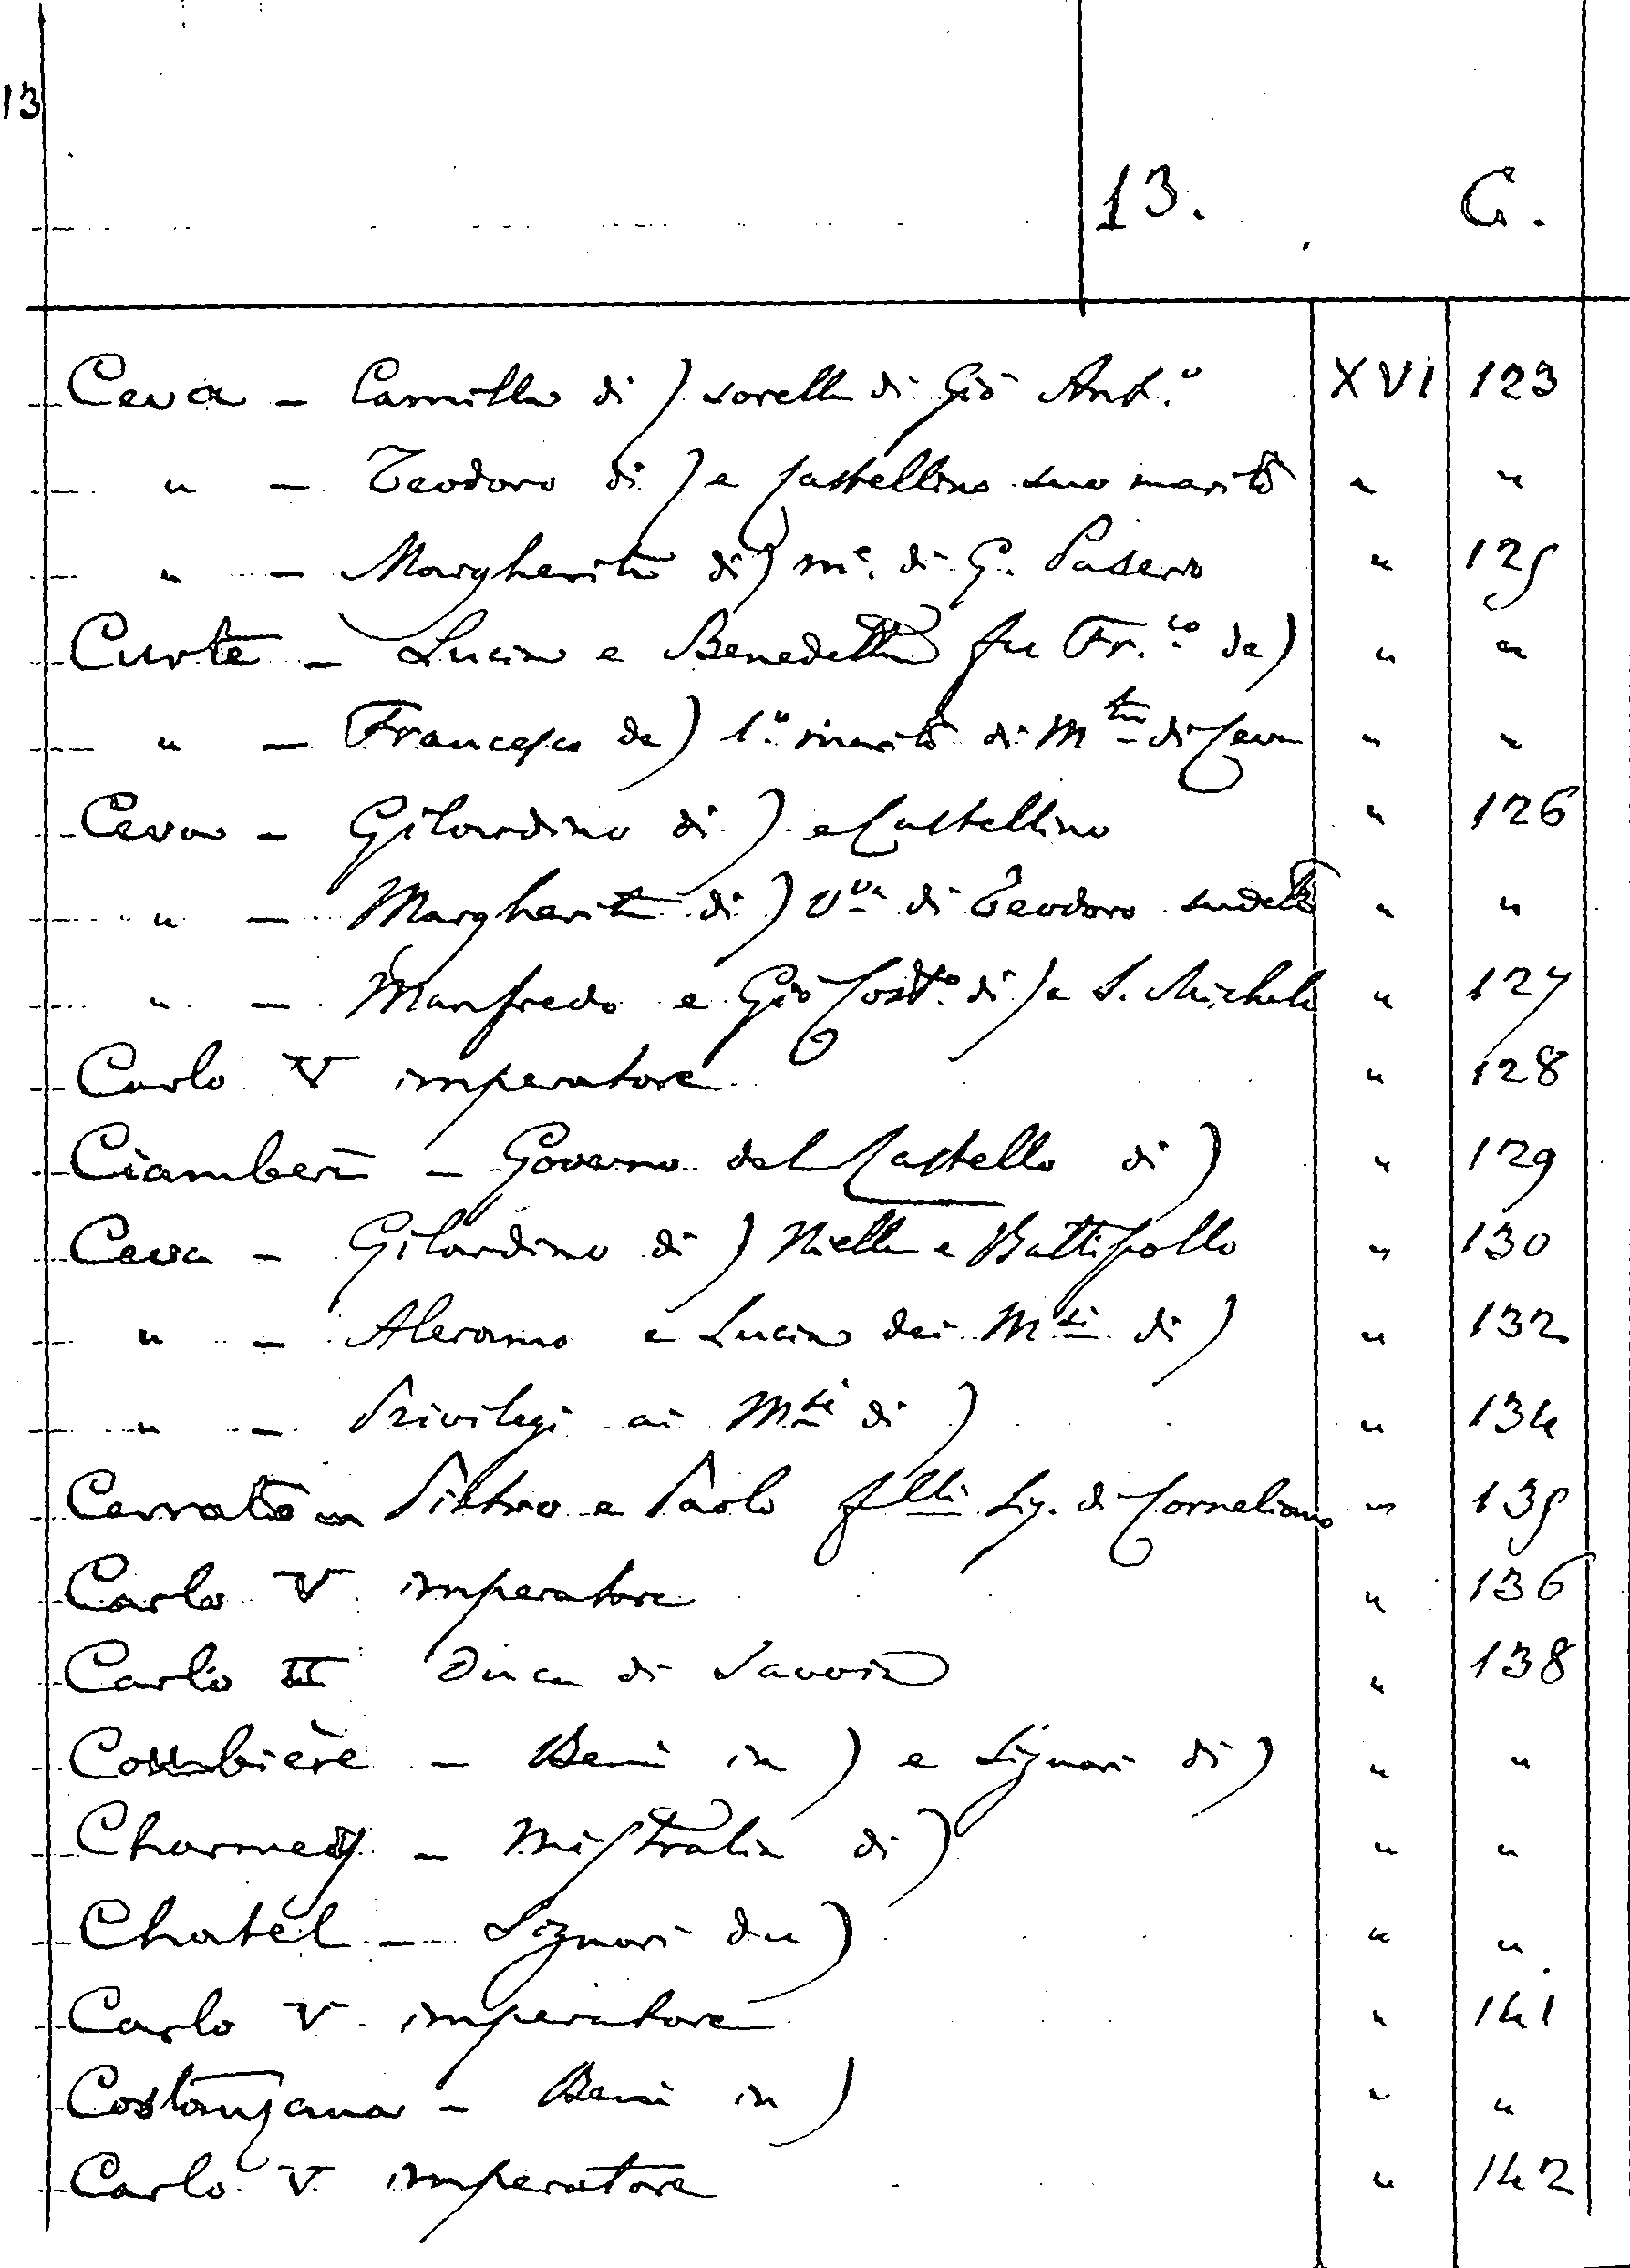 13
13. C.
Ceva - Camilla di ) sorella di Giò Ant.º XVI 123
" - Teodoro di ) e Castellino suo marito " "
" - Margherita di ) me. di G. Pasero " 125
Curte - Lucia e Benedetta fu Fr.co de ) " "
" - Francesco de ) 1.º marito di Mta di Ceva " "
Ceva - Gilardino di ) e Castellino " 126
" - Margherita di ) Vva di Teodoro sudetto " "
" - Manfredo e Giò Cost.º di ) e S. Michele " 127
Carlo V imperatore " 128
Ciamberì - Governo del Castello di ) " 129
Ceva - Gilardino di ) Niella e Battifollo " 130
" - Aleramo e Lucia dei Msi di ) " 132
" - Privilegi ai Msi di ) " 134
Cerrato - Pietro e Paolo flli Sig. di Corneliano " 135
Carlo V imperatore " 136
Carlo II Duca di Savoia " 138
Combière - Beni in ) e Signori di ) " "
- Mistralia di ) " "
Chatêl - Signori du ) " "
Carlo V imperatore " 141
Costanzana - Beni in ) " "
Carlo V imperatore " 142